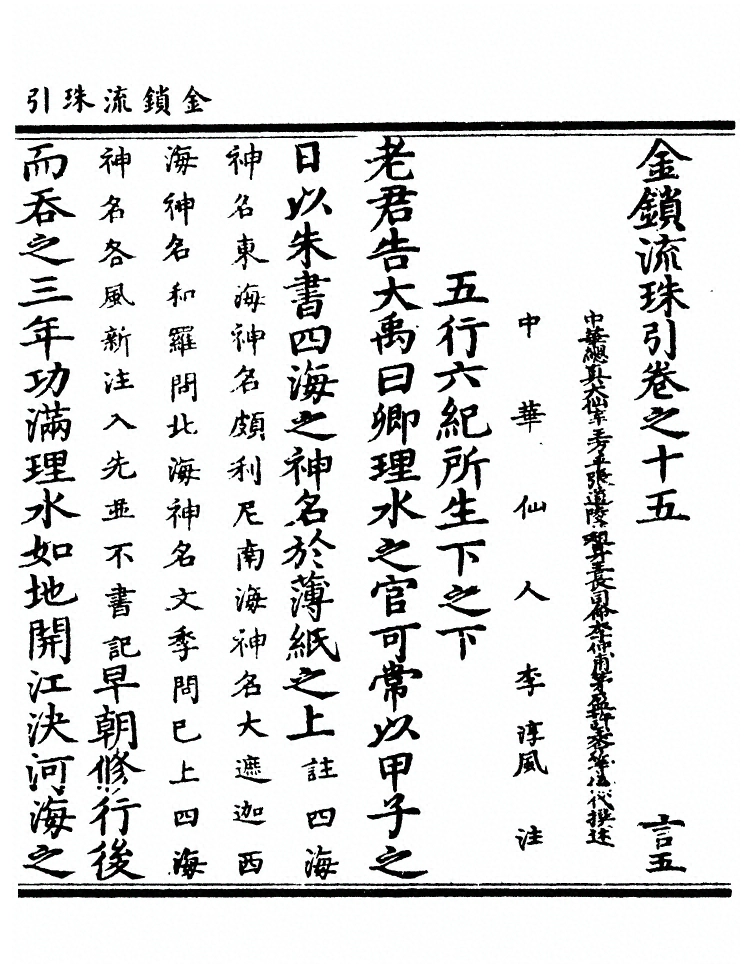 金鎖流珠引
金鎖流珠引卷之十五 言五
中華仙人李淳風注
五行六紀所生下之下
老君告大禹曰卿理水之官可常以甲子之
日以朱書四海之神名於薄紙之上註四海
神名東海神名頗利尼南海神名大遮迦西
海神名和羅問北海神名文季問已上四海
神名各風新注入先並不書記早朝修行後
而吞之三年功滿理水如地開江決河海之